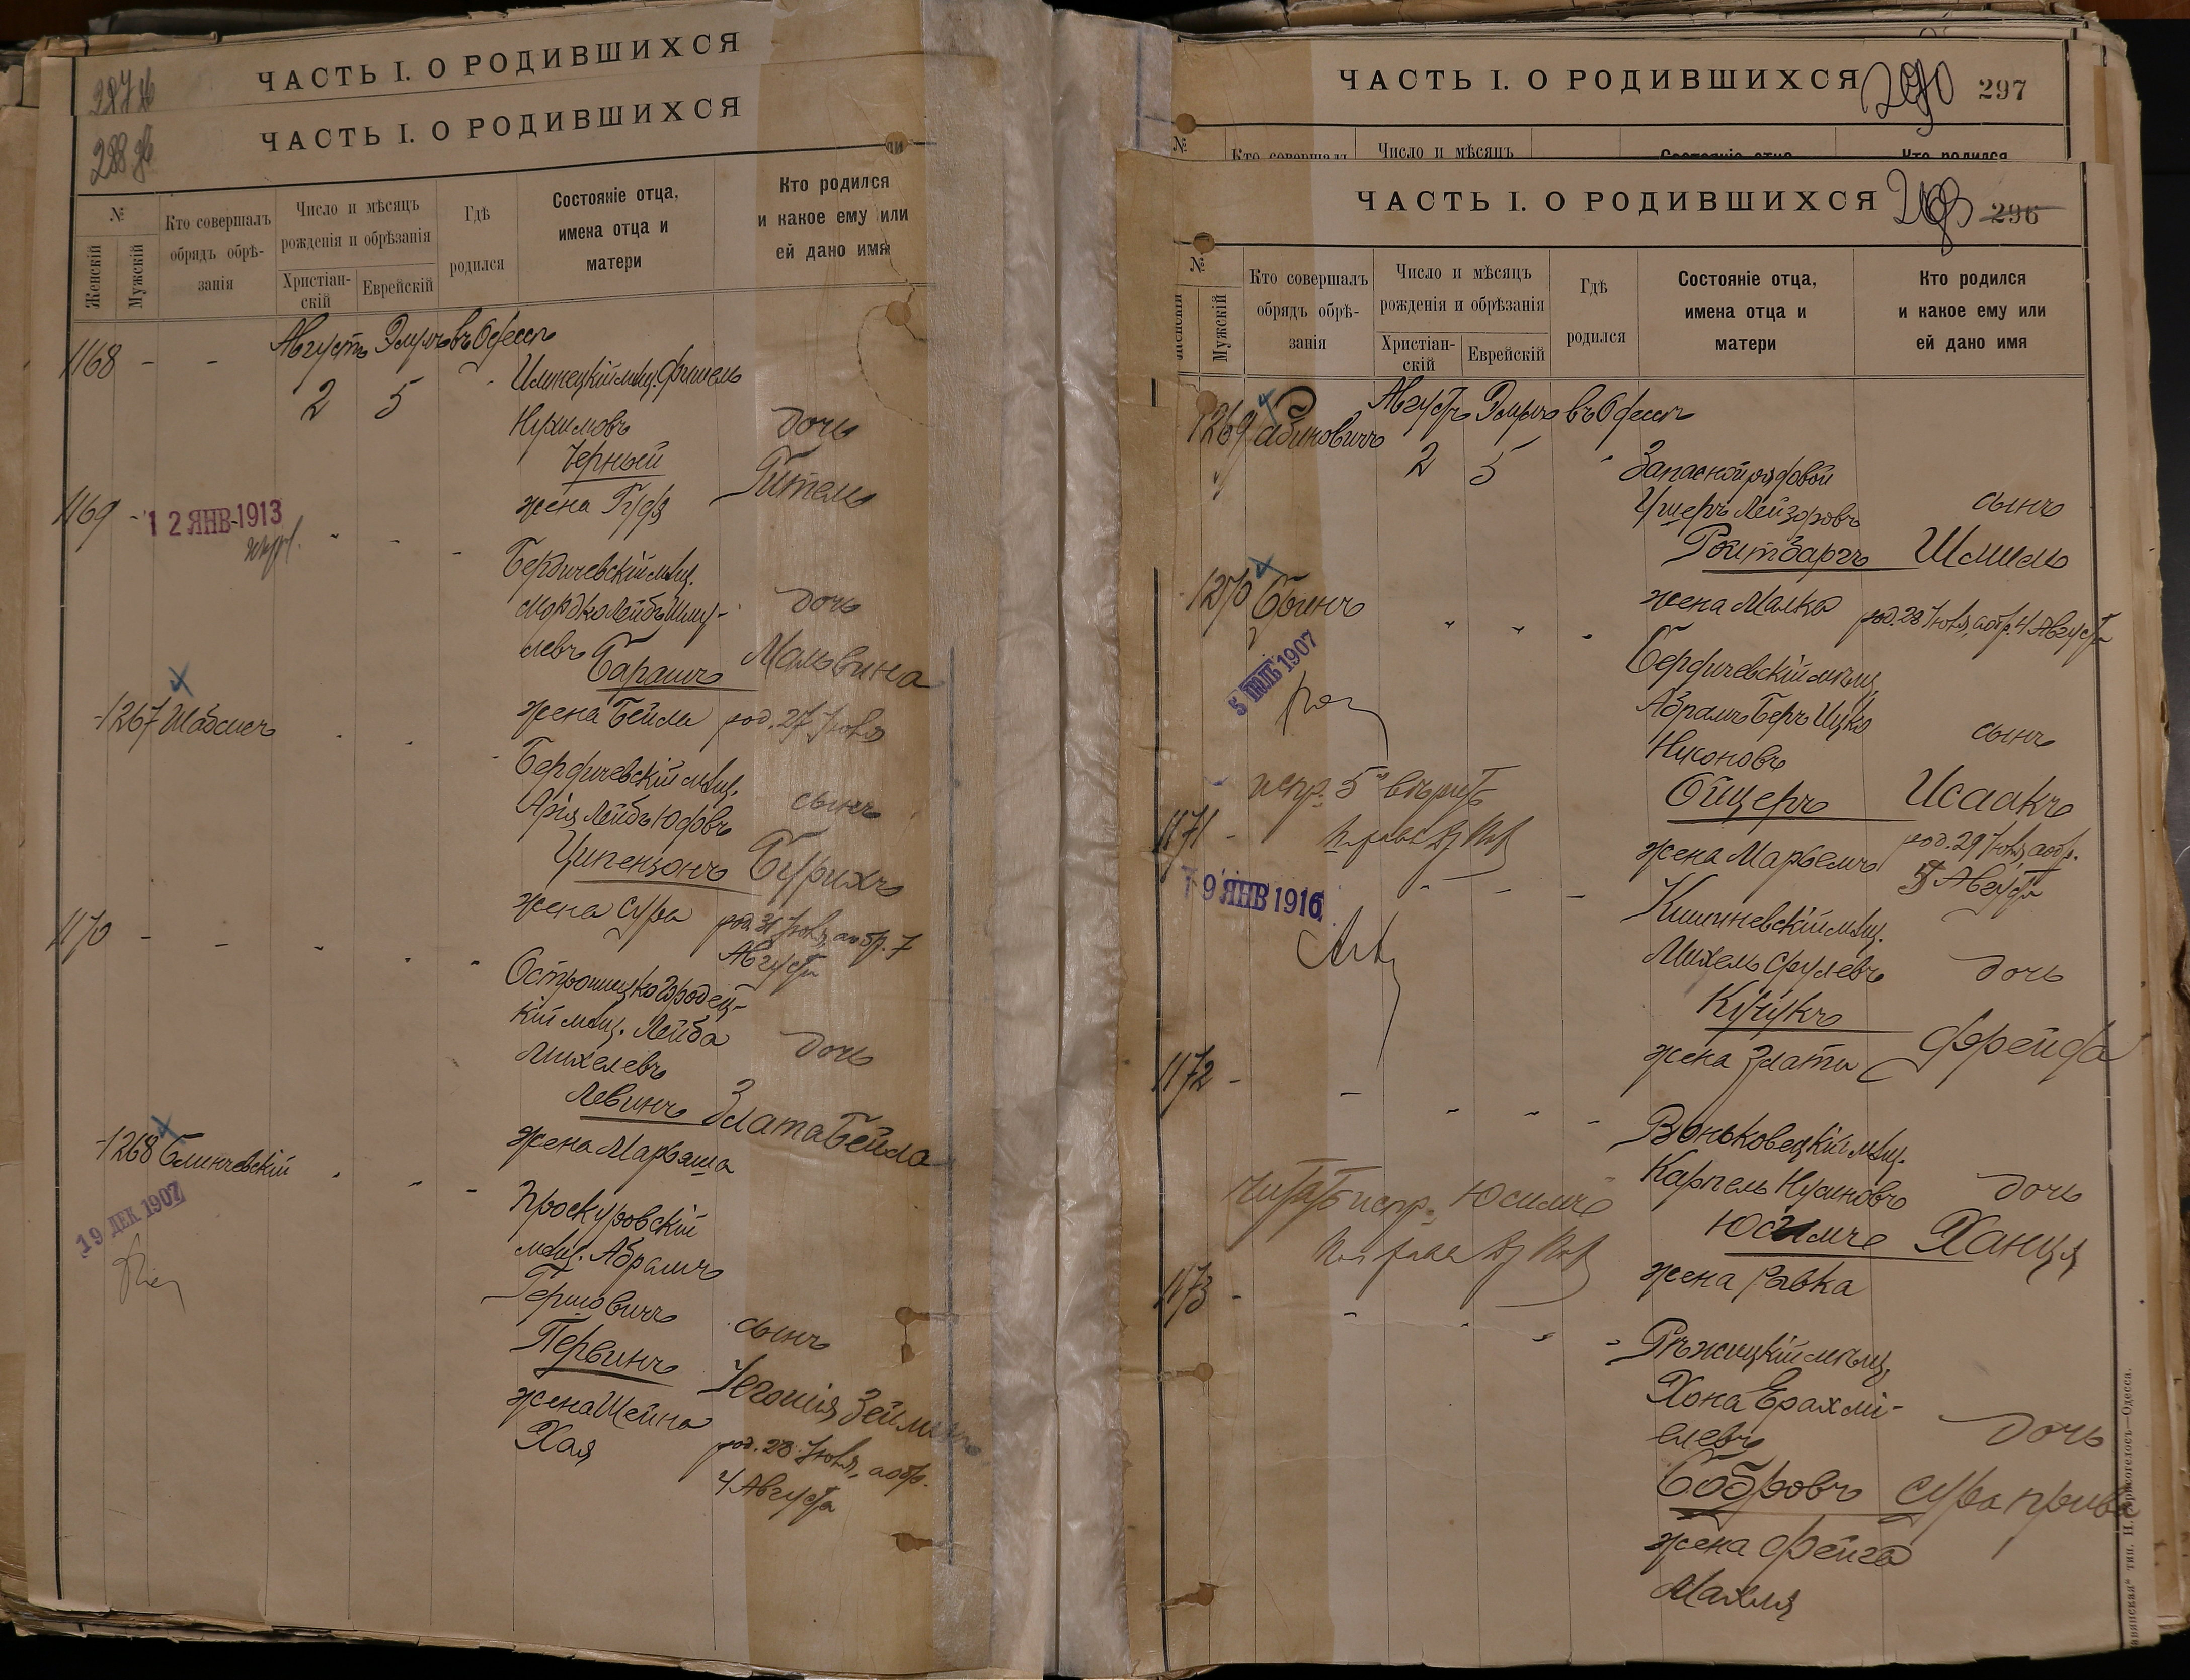 ЧАСТЬ I. О РОДИВШИХСЯ
ЧАСТЬ I. О РОДИВШИХСЯ
№
Женскій
Мужскій
Кто совершалъ
обрядъ обрѣ-
занія
Число и мѣсяцъ
рожденія и обрѣзанія
Христіан-
скій
Еврейскій
Гдѣ
родился
Состояніе отца,
имена отца и
матери
Кто родился
и какое ему или
ей дано имя
1168 - -
Августъ Элулъ въ Одессѣ
2 5
мѣщ. Фишель
Нухимовъ
Черный
жена Годя
дочь
Гитель
1169 -
12 ЯНВ 1913
Бердичевскій мѣщ.
Мордко Лейбъ Шму-
левъ
Барашъ
жена Бейла
дочь
Мальвина
род. 27 Іюля
1267 Шабсисъ
Бердичевскій мѣщ.
Арія Лейбъ Юдовъ
Ципензонъ
жена Сура
сынъ
Бурихъ
род. 31 Іюля, а обр. 7
Августа
1170 - -
Острошицко Городец-
кій мѣщ. Лейба
Михелевъ
Левинъ
жена Марьяша
дочь
Злата Бейла
1268 Блинчевскій
19 ДЕК 1907
Проскуровскій
мѣщ. Абрамъ
Гершовичъ
Первинъ
жена Шейна
Хая
сынъ
род. 28 Іюля, а обр.
4 Августа
ЧАСТЬ I. О РОДИВШИХСЯ
297
№
Кто совершалъ
Число и мѣсяцъ
Состояніе отца
Кто родился
ЧАСТЬ I. О РОДИВШИХСЯ
296
№
Женскій
Мужскій
Кто совершалъ
обрядъ обрѣ-
занія
Число и мѣсяцъ
рожденія и обрѣзанія
Христіан-
скій
Еврейскій
Гдѣ
родился
Состояніе отца,
имена отца и
матери
Кто родился
и какое ему или
ей дано имя
1269
Августъ Элулъ въ Одессѣ
2 5
Запасной рядовой
Ушеръ Лейзоровъ
Ройтбаргъ
жена Малка
сынъ
Шмиль
род. 28 Іюля, а обр. 4 Августа
1270
5 ІЮЛЬ 1907
Бердичевскій мѣщ.
Абрамъ Беръ Ицко
Нисоновъ
Ойцеръ
жена Марьемъ
сынъ
Исаакъ
род. 29 Іюля, а обр.
5 Августа
испр. 5 вѣрить
1171 -
19 ЯНВ 1916
Кишиневскій мѣщ.
Михель Срулевъ
Кучукъ
жена Злата
дочь
Фрейда
1172 - -
Воньковецкій мѣщ.
Карпель Нусиновъ
Юсимче
жена Ривка
дочь
Ханця
читать испр. Юсимче
1173 - -
Рѣжицкій мѣщ.
Хона Ерахмі-
елевъ
Бобровъ
жена Фейга
Махля
дочь
Сура Прива